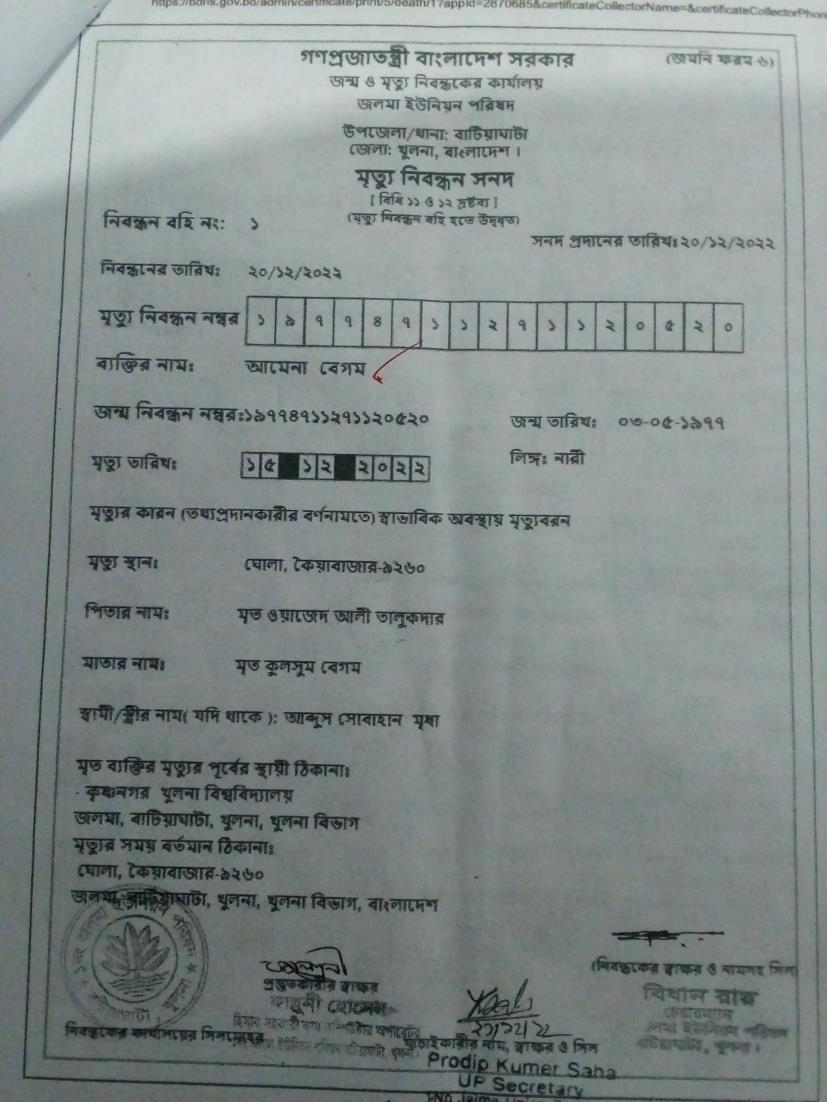 https://bdris.gov.bd/admin/certificate/print/5/death/1?appId=2870685&certificateCollectorName=&certificateCollectorPhon
গণপ্রজাতন্ত্রী বাংলাদেশ সরকার
(জমনি ফরম ৬)
জন্ম ও মৃত্যু নিবন্ধকের কার্যালয়
জলমা ইউনিয়ন পরিষদ
উপজেলা/থানা: বাটিয়াঘাটা
জেলা: খুলনা, বাংলাদেশ ।
মৃত্যু নিবন্ধন সনদ
[ বিধি ১১ ও ১২ দ্রষ্টব্য ]
(মৃত্যু নিবন্ধন বহি হতে উদ্ধৃত)
নিবন্ধন বহি নং: ১
সনদ প্রদানের তারিখ: ২০/১২/২০২২
নিবন্ধনের তারিখ: ২০/১২/২০২২
মৃত্যু নিবন্ধন নম্বর ১ ৯ ৭ ৭ ৪ ৭ ১ ১ ২ ৭ ১ ১ ২ ০ ৫ ২ ০
ব্যক্তির নাম: আমেনা বেগম
জন্ম নিবন্ধন নম্বর: ১৯৭৭৪৭১১২৭১১২০৫২০ জন্ম তারিখ: ০৩-০৫-১৯৭৭
মৃত্যু তারিখ: ১ ৫ ১ ২ ২ ০ ২ ২ লিঙ্গ: নারী
মৃত্যুর কারন (তথ্যপ্রদানকারীর বর্ণনামতে) স্বাভাবিক অবস্থায় মৃত্যুবরন
মৃত্যু স্থান: ঘোলা, কৈয়াবাজার-৯২৬০
পিতার নাম: মৃত ওয়াজেদ আলী তালুকদার
মাতার নাম: মৃত কুলসুম বেগম
স্বামী/স্ত্রীর নাম( যদি থাকে ): আব্দুস সোবাহান মৃধা
মৃত ব্যক্তির মৃত্যুর পূর্বের স্থায়ী ঠিকানা:
কৃষ্ণনগর খুলনা বিশ্ববিদ্যালয়
জলমা, বাটিয়াঘাটা, খুলনা, খুলনা বিভাগ
মৃত্যুর সময় বর্তমান ঠিকানা:
ঘোলা, কৈয়াবাজার-৯২৬০
জলমা, বাটিয়াঘাটা, খুলনা, খুলনা বিভাগ, বাংলাদেশ
প্রস্তুতকারীর স্বাক্ষর
(নিবন্ধকের স্বাক্ষর ও নামসহ সিল)
বিধান রায়
চেয়ারম্যান
ইউনিয়ন পরিষদ
বটিয়াঘাটা, খুলনা ।
নিবন্ধকের কার্যালয়ের সিলমোহর
যাচাইকারীর নাম, স্বাক্ষর ও সিল
Prodip Kumer Saha
UP Secretary